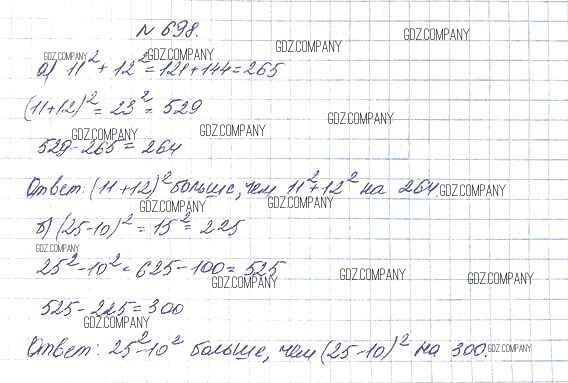 № 698.
GDZ.COMPANY GDZ.COMPANY GDZ.COMPANY GDZ.COMPANY
а) 11² + 12² = 121 + 144 = 265
(11+12)² = 23² = 529
GDZ.COMPANY GDZ.COMPANY GDZ.COMPANY
529 - 265 = 264
Ответ: (11+12)² больше, чем 11² + 12² на 264. GDZ.COMPANY
GDZ.COMPANY GDZ.COMPANY
б) (25-10)² = 15² = 225
GDZ.COMPANY
25² - 10² = 625 - 100 = 525
GDZ.COMPANY GDZ.COMPANY GDZ.COMPANY
525 - 225 = 300
GDZ.COMPANY
Ответ: 25² - 10² больше, чем (25-10)² на 300. GDZ.COMPANY